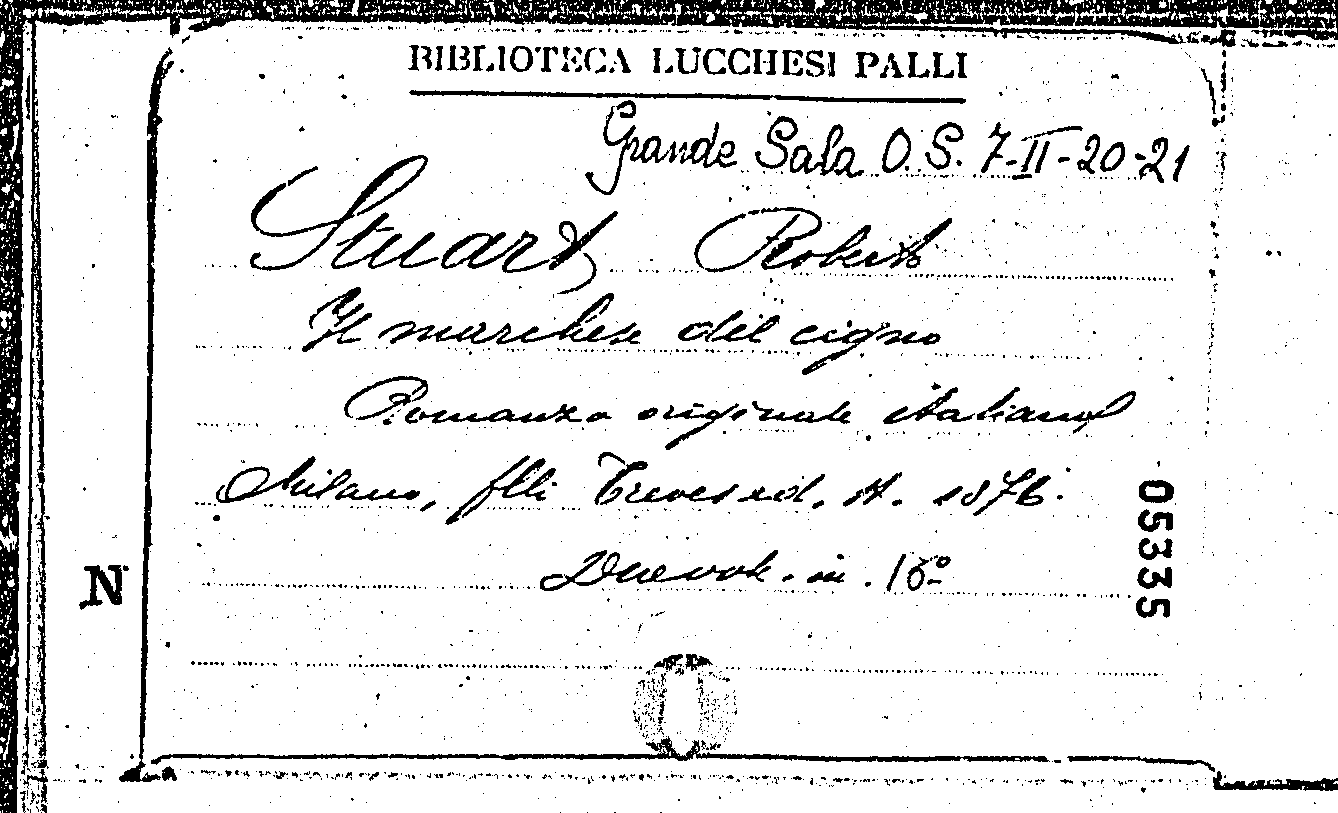 BIBLIOTECA LUCCHESI PALLI
Grande Sala O.S. 7-II-20-21
Stuart Roberto
Il marchese del cigno
Romanzo originale italiano
Milano, flli Treves ed. 1876.
Due vol. in 16º
05335
N